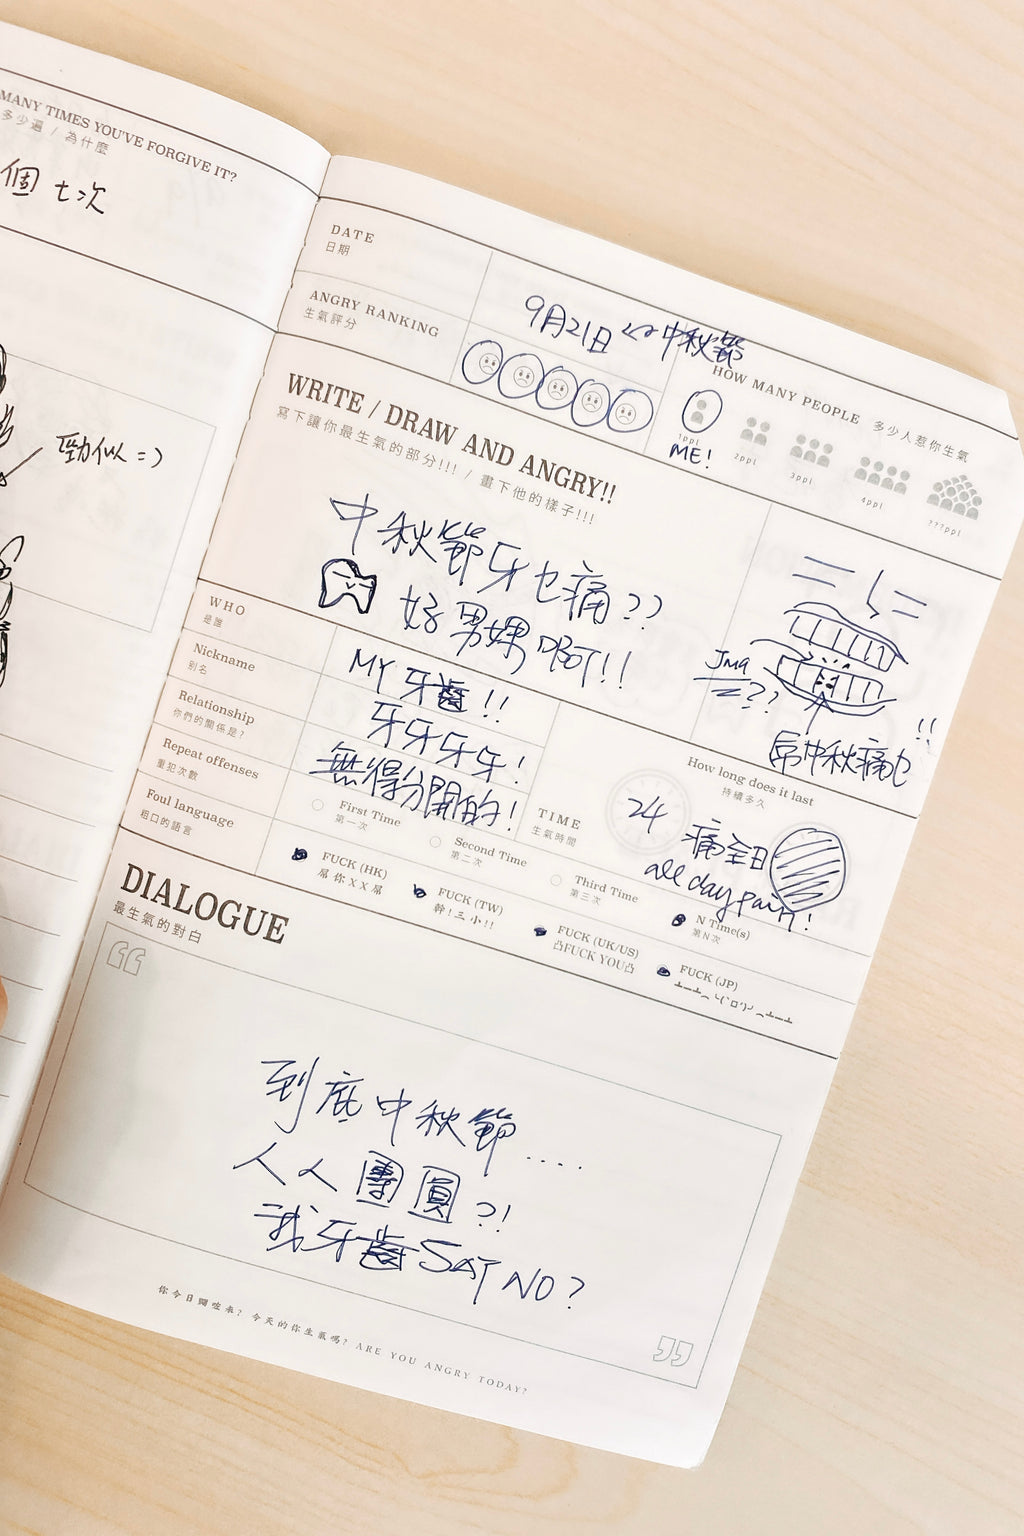 MANY TIMES YOU'VE FORGIVE IT?
多少遍 / 為什麼
個 七次
勁似 =)
DATE
日期
9月21日 <-> 中秋節
ANGRY RANKING
生氣評分
HOW MANY PEOPLE 多少人惹你生氣
1ppl
2ppl
3ppl
4ppl
???ppl
ME!
WRITE / DRAW AND ANGRY!!
寫下讓你最生氣的部分!!! / 畫下他的樣子!!!
中秋節牙乜痛??
好男媒啊!!
??
!!
WHO
是誰
MY 牙齒!!
Nickname
別名
牙牙牙牙!
Relationship
你們的關係是?
無得分開的!
Repeat offenses
重犯次數
First Time
第一次
Second Time
第二次
Third Time
第三次
N Time(s)
第N次
TIME
生氣時間
How long does it last
持續多久
24 痛全日
all day pain!
Foul language
粗口的語言
FUCK (HK)
屌你XX屌
FUCK (TW)
幹!三小!!
FUCK (UK/US)
凸FUCK YOU凸
FUCK (JP)
DIALOGUE
最生氣的對白
到底中秋節....
人人團圓?!
我牙齒 SAY NO?
你今日嬲咗未? 今天的你生氣嗎? ARE YOU ANGRY TODAY?